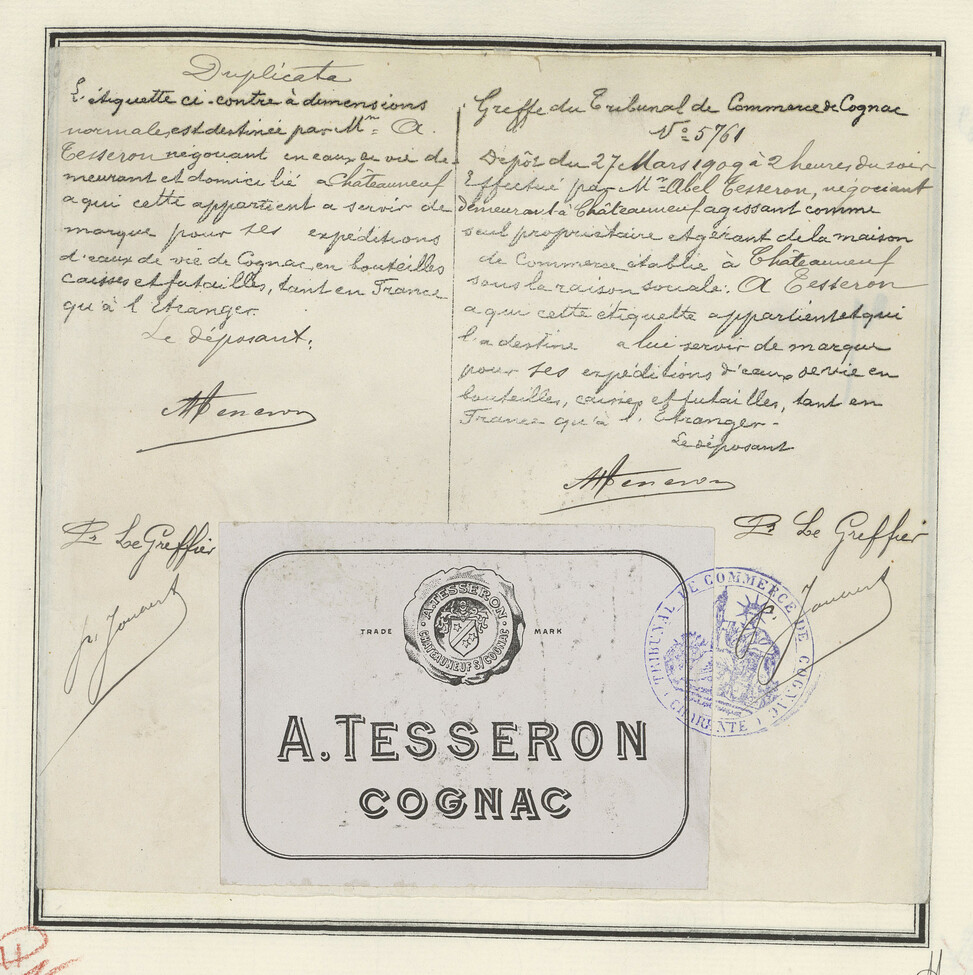 Duplicata
L'étiquette ci-contre à dimensions
normales, est destinée par Mr A.
Tesseron négociant en eaux de vie de-
meurant et domicilié a Châteauneuf
a qui cette appartient a servir de
marque pour ses expéditions
d'eaux de vie de Cognac, en bouteilles
caisses et futailles, tant en France
qu'à l'Etranger.
Le déposant,
ATesseron
Pr Le Greffier
Greffe du Tribunal de Commerce de Cognac
No 5761
Dépôt du 27 Mars 1909 à 2 heures du soir
Effectué par Mr Abel Tesseron, négociant
demeurant à Châteauneuf agissant comme
seul propriétaire et gérant de la maison
de Commerce établie à Châteauneuf
sous la raison sociale: A Tesseron
a qui cette étiquette appartient et qui
l'a destine a lui servir de marque
pour ses expéditions d'eaux de vie en
bouteilles, caisses et futailles, tant en
France qu'à l'Etranger-
Le déposant
ATesseron
Pr Le Greffier
A. TESSERON
CHATEAUNEUF S/ COGNAC
TRADE MARK
A. TESSERON
COGNAC
TRIBUNAL DE COMMERCE DE COGNAC
CHARENTE